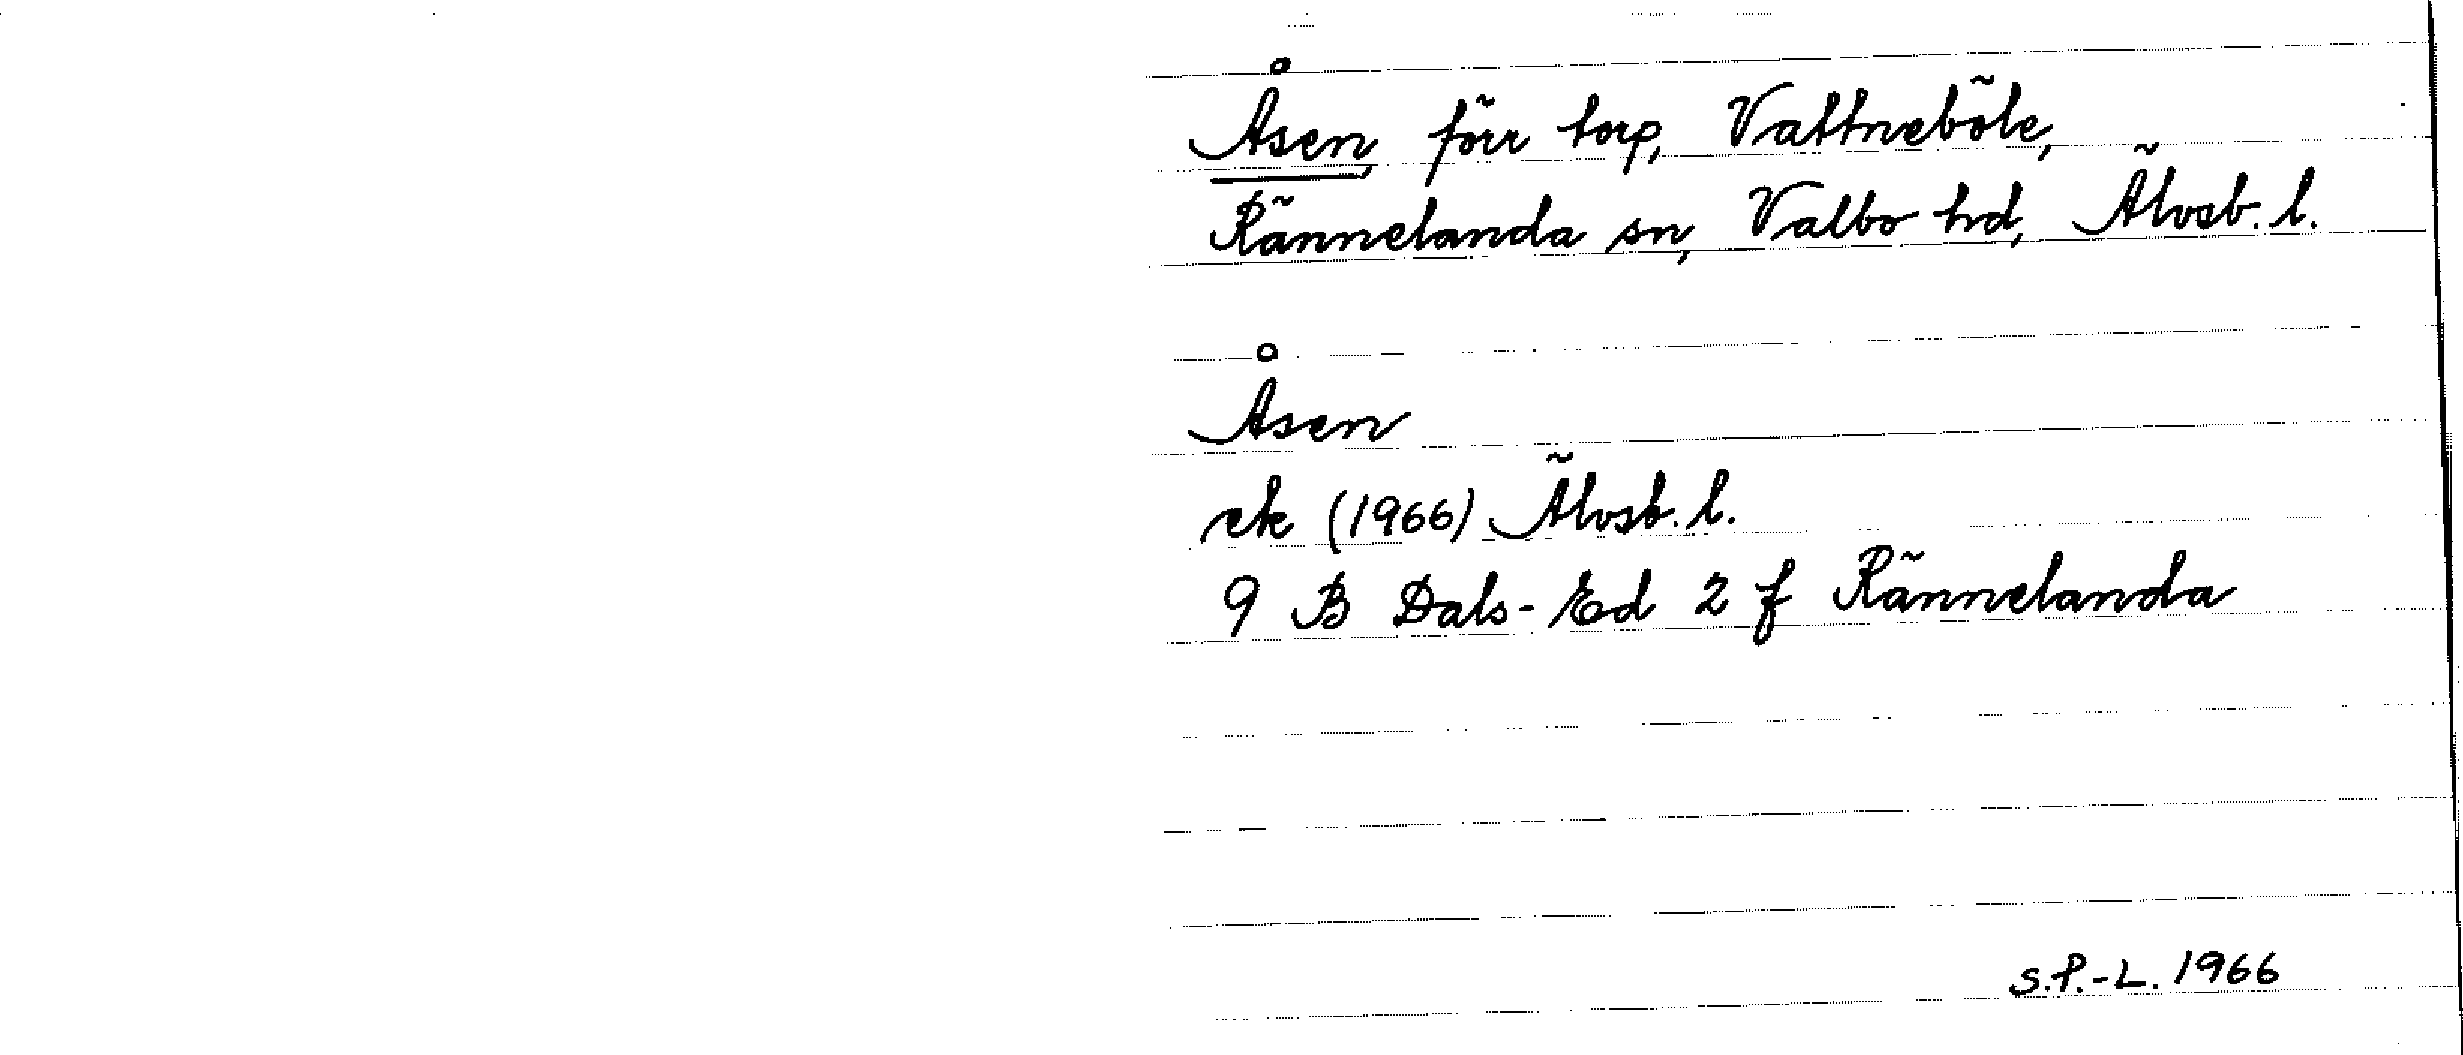 Åsen, förr torp, Vattneböle,
Rännelanda sn, Valbo hd, Älvsb. l.
Åsen
ek (1966) Älvsb. l.
9 B Dals-Ed 2 f Rännelanda
S.P.-L. 1966